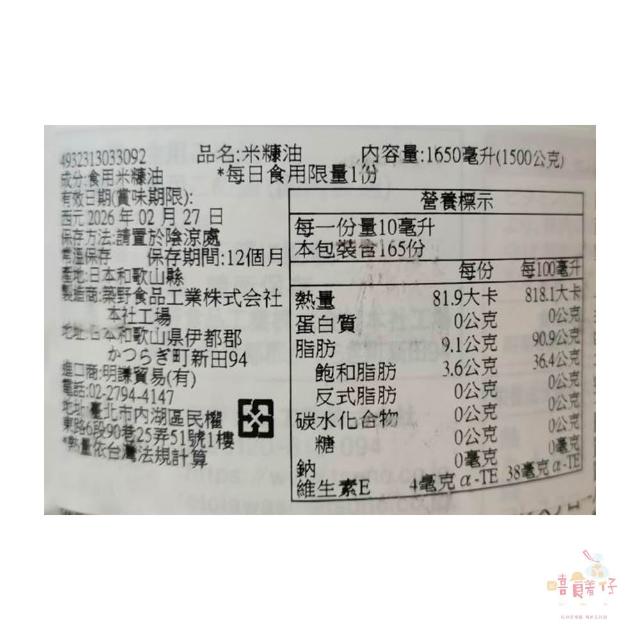 4932313033092 品名:米糠油 內容量:1650毫升(1500公克)
成分:食用米糠油 *每日食用限量1份
有效日期(賞味期限):
西元 2026 年 02 月 27 日
保存方法:請置於陰涼處
常溫保存 保存期間:12個月
產地:日本和歌山縣
製造商:築野食品工業株式会社
本社工場
地址:日本和歌山県伊都郡
かつらぎ町新田94
進口商:明謙貿易(有)
電話:02-2794-4147
地址:臺北市內湖區民權
東路6段90巷25弄51號1樓
*熱量依台灣法規計算
營養標示
每一份量10毫升
本包裝含165份
每份 每100毫升
熱量 81.9大卡 818.1大卡
蛋白質 0公克 0公克
脂肪 9.1公克 90.9公克
飽和脂肪 3.6公克 36.4公克
反式脂肪 0公克 0公克
碳水化合物 0公克 0公克
糖 0公克 0公克
鈉 0毫克 0毫克
維生素E 4毫克 α-TE 38毫克 α-TE